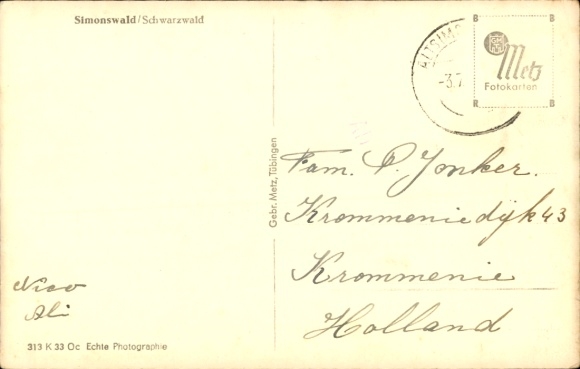 Simonswald/Schwarzwald
B B
Metz
Fotokarten
R B
-3.7
Gebr. Metz, Tübingen
Fam. P. Jonker.
Krommeniedijk 43
Krommenie
Holland
Nico
Ali
313 K 33 Oc Echte Photographie